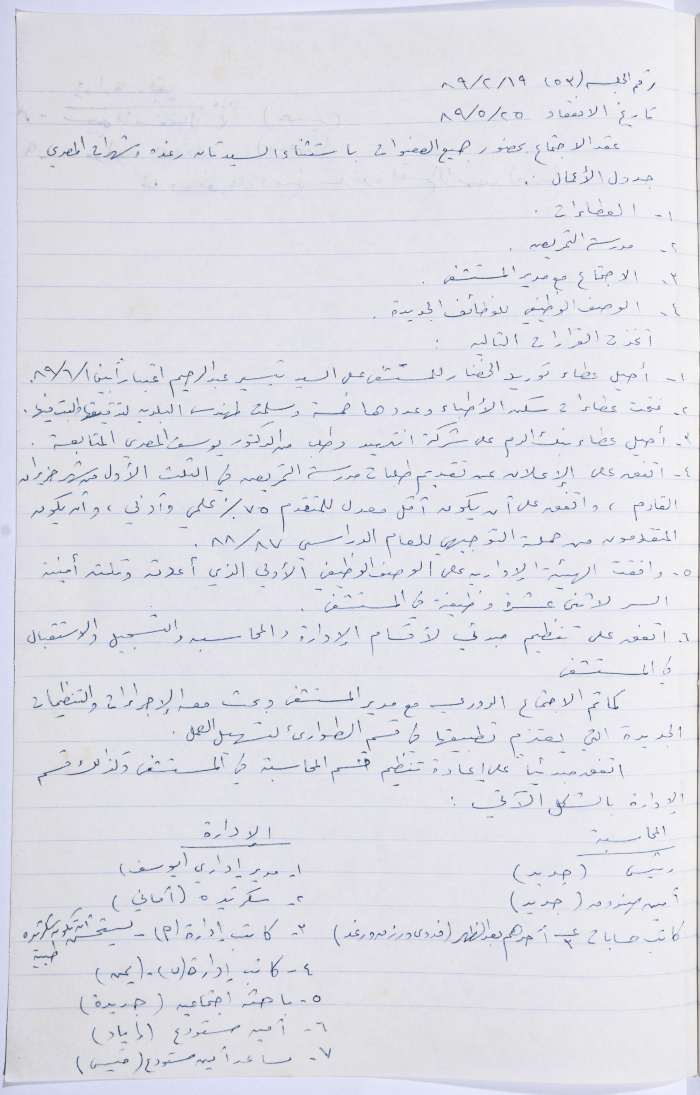 رقم الجلسة (٥٣) ٨٩/٢/١٩
تاريخ الانعقاد ٨٩/٥/٢٥
عقد الاجتماع بحضور جميع العضوات باستثناء السيدتان رغده وشهرات المصري
جدول الأعمال :
١- العطاءات .
٢- مدرسة التمريض .
٣- الاجتماع مع مدير المستشفى .
٤- الوصف الوظيفي للوظائف الجديدة .
اتخذت القرارات التالية :
١- أحيل عطاء توريد الخضار للمستشفى على السيد تيسير عبد الرحيم اعتباراً من ٨٩/٦/١
٢- فتحت عطاءات سكن الأطباء وعددها خمسة وسلمت لمهندس البلدية لتدقيقها
٣- أحيل عطاء بنك الدم على شركة وطلب من الدكتور يوسف المصري المتابعة .
٤- اتفق على الإعلان عن تقديم طلبات مدرسة التمريض في الثلث الأول من شهر حزيران
القادم ، واتفق على أن يكون أقل معدل للمتقدم ٧٥٪ علمي وأدبي ، وأن يكون
المتقدمون من حملة التوجيهي للعام الدراسي ٨٨/٨٧ .
٥- وافقت الهيئة الإدارية على الوصف الوظيفي الأولي الذي أعدته وتلته أمينة
السر لاثنتي عشرة وظيفة في المستشفى .
٦- اتفق على تنظيم مبدئي لأقسام الإدارة والمحاسبة والتسجيل والاستقبال
في المستشفى
كما تم الاجتماع الدوري مع مدير المستشفى وبحث معه الإجراءات والتنظيمات
الجديدة التي يعتزم تطبيقها في قسم الطوارئ لتسهيل العمل .
اتفق مبدئياً على إعادة تنظيم قسم المحاسبة في المستشفى وكذلك قسم
الإدارة بالشكل الآتي :
المحاسبة الإدارة
رئيس (جديد) ١- مدير إداري (أبو يوسف)
أمين صندوق (جديد) ٢- سكرتيرة (أماني)
كاتب حسابات عدد ٣ أحدهم بعد الظهر (فدوى ورغد) ٣- كاتب إدارة (م) - يستحسن أن تكون سكرتيرة
طبية
٤- كاتب إدارة (ن) - (أيمن)
٥- باحثة اجتماعية (جديدة)
٦- أمين مستودع (إياد)
٧- مساعد أمين مستودع (قيس)